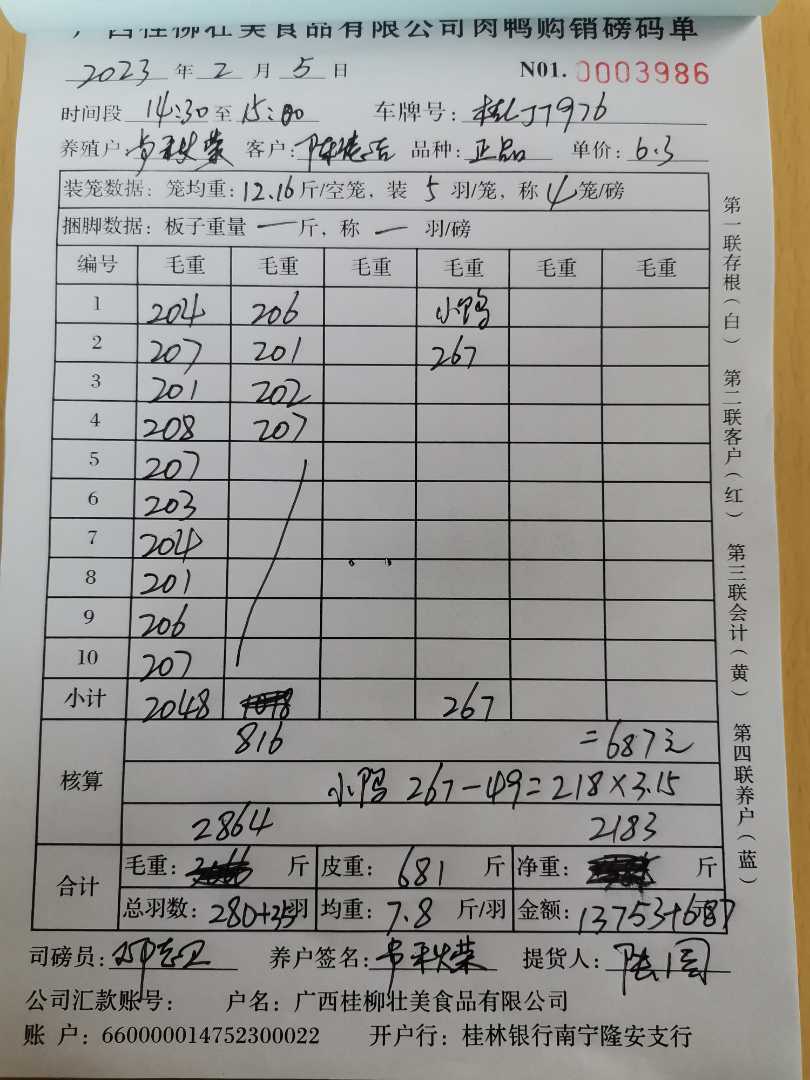 广西桂柳壮美食品有限公司肉鸭购销磅码单
2023 年 2 月 5 日 N01. 0003986
时间段 14:30 至 15:00 车牌号: 桂LJ7976
养殖户: 韦秋荣 客户: 陈德活 品种: 正品 单价: 6.3
装笼数据: 笼均重: 12.16 斤/空笼, 装 5 羽/笼, 称 4 笼/磅
捆脚数据: 板子重量 一 斤, 称 一 羽/磅
编号 毛重 毛重 毛重 毛重 毛重 毛重
1 204 206 小鸭
2 207 201 267
3 201 202
4 208 207
5 207
6 203
7 204
8 201
9 206
10 207
小计 2048 267
816 =687元
核算 小鸭 267-49=218×3.15
2864 2183
合计 毛重: 斤 皮重: 681 斤 净重: 斤
总羽数: 280+35羽 均重: 7.8 斤/羽 金额: 13753+687
司磅员: 养户签名: 韦秋荣 提货人:
公司汇款账号: 户名: 广西桂柳壮美食品有限公司
账 户: 660000014752300022 开户行: 桂林银行南宁隆安支行
第一联存根(白) 第二联客户(红) 第三联会计(黄) 第四联养户(蓝)